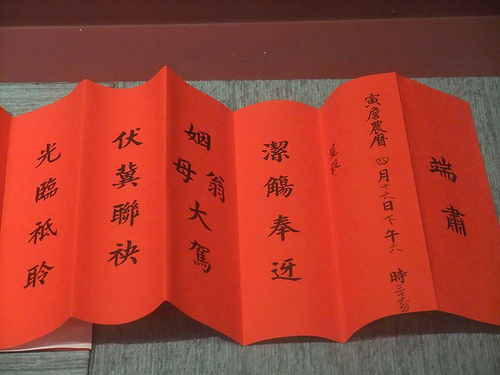 端肅
寅詹農曆四月十六日下午六時三十六分
潔觴奉迓
姻翁母大駕
伏冀聯袂
光臨祗聆